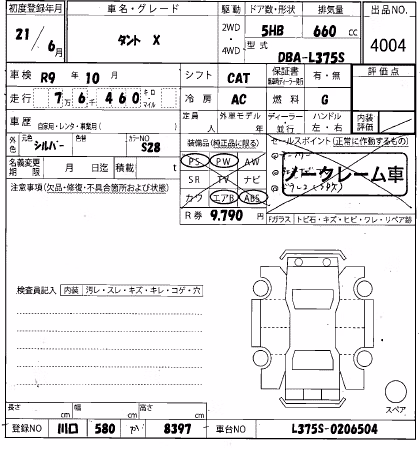 初度登録年月 車名・グレード 駆動 ドア数・形状 排気量 出品NO.
21/6月 タント X 2WD・4WD 5HB 660 cc 4004
型式 DBA-L375S
車検 R9年10月 シフト CAT 保証書 有・無 評価点
走行 7万6千460 キロ マイル 冷房 AC 燃料 G
車歴 自家用・レンタ・事業用( ) 定員 人 外車モデル 年 ディーラー・並行 ハンドル 左・右 内装評価
外色 元色 シルバー 色替 カラーNO S28 装備品(純正品に限る) セールスポイント(正常に作動するもの)
名義変更期限 月 日迄 積載 t PS PW AW
注意事項(欠品・修復・不具合箇所および状態) SR TV ナビ ノークレーム車
カワ エアB ABS
R券 9,790 円 Fガラス トビ石・キズ・ヒビ・ワレ・リペア跡
検査員記入 内装 汚レ・スレ・キズ・キレ・コゲ・穴
スペア
長さ cm 幅 cm 高さ cm
登録NO 川口 580 か 8397 車台NO L375S-0206504